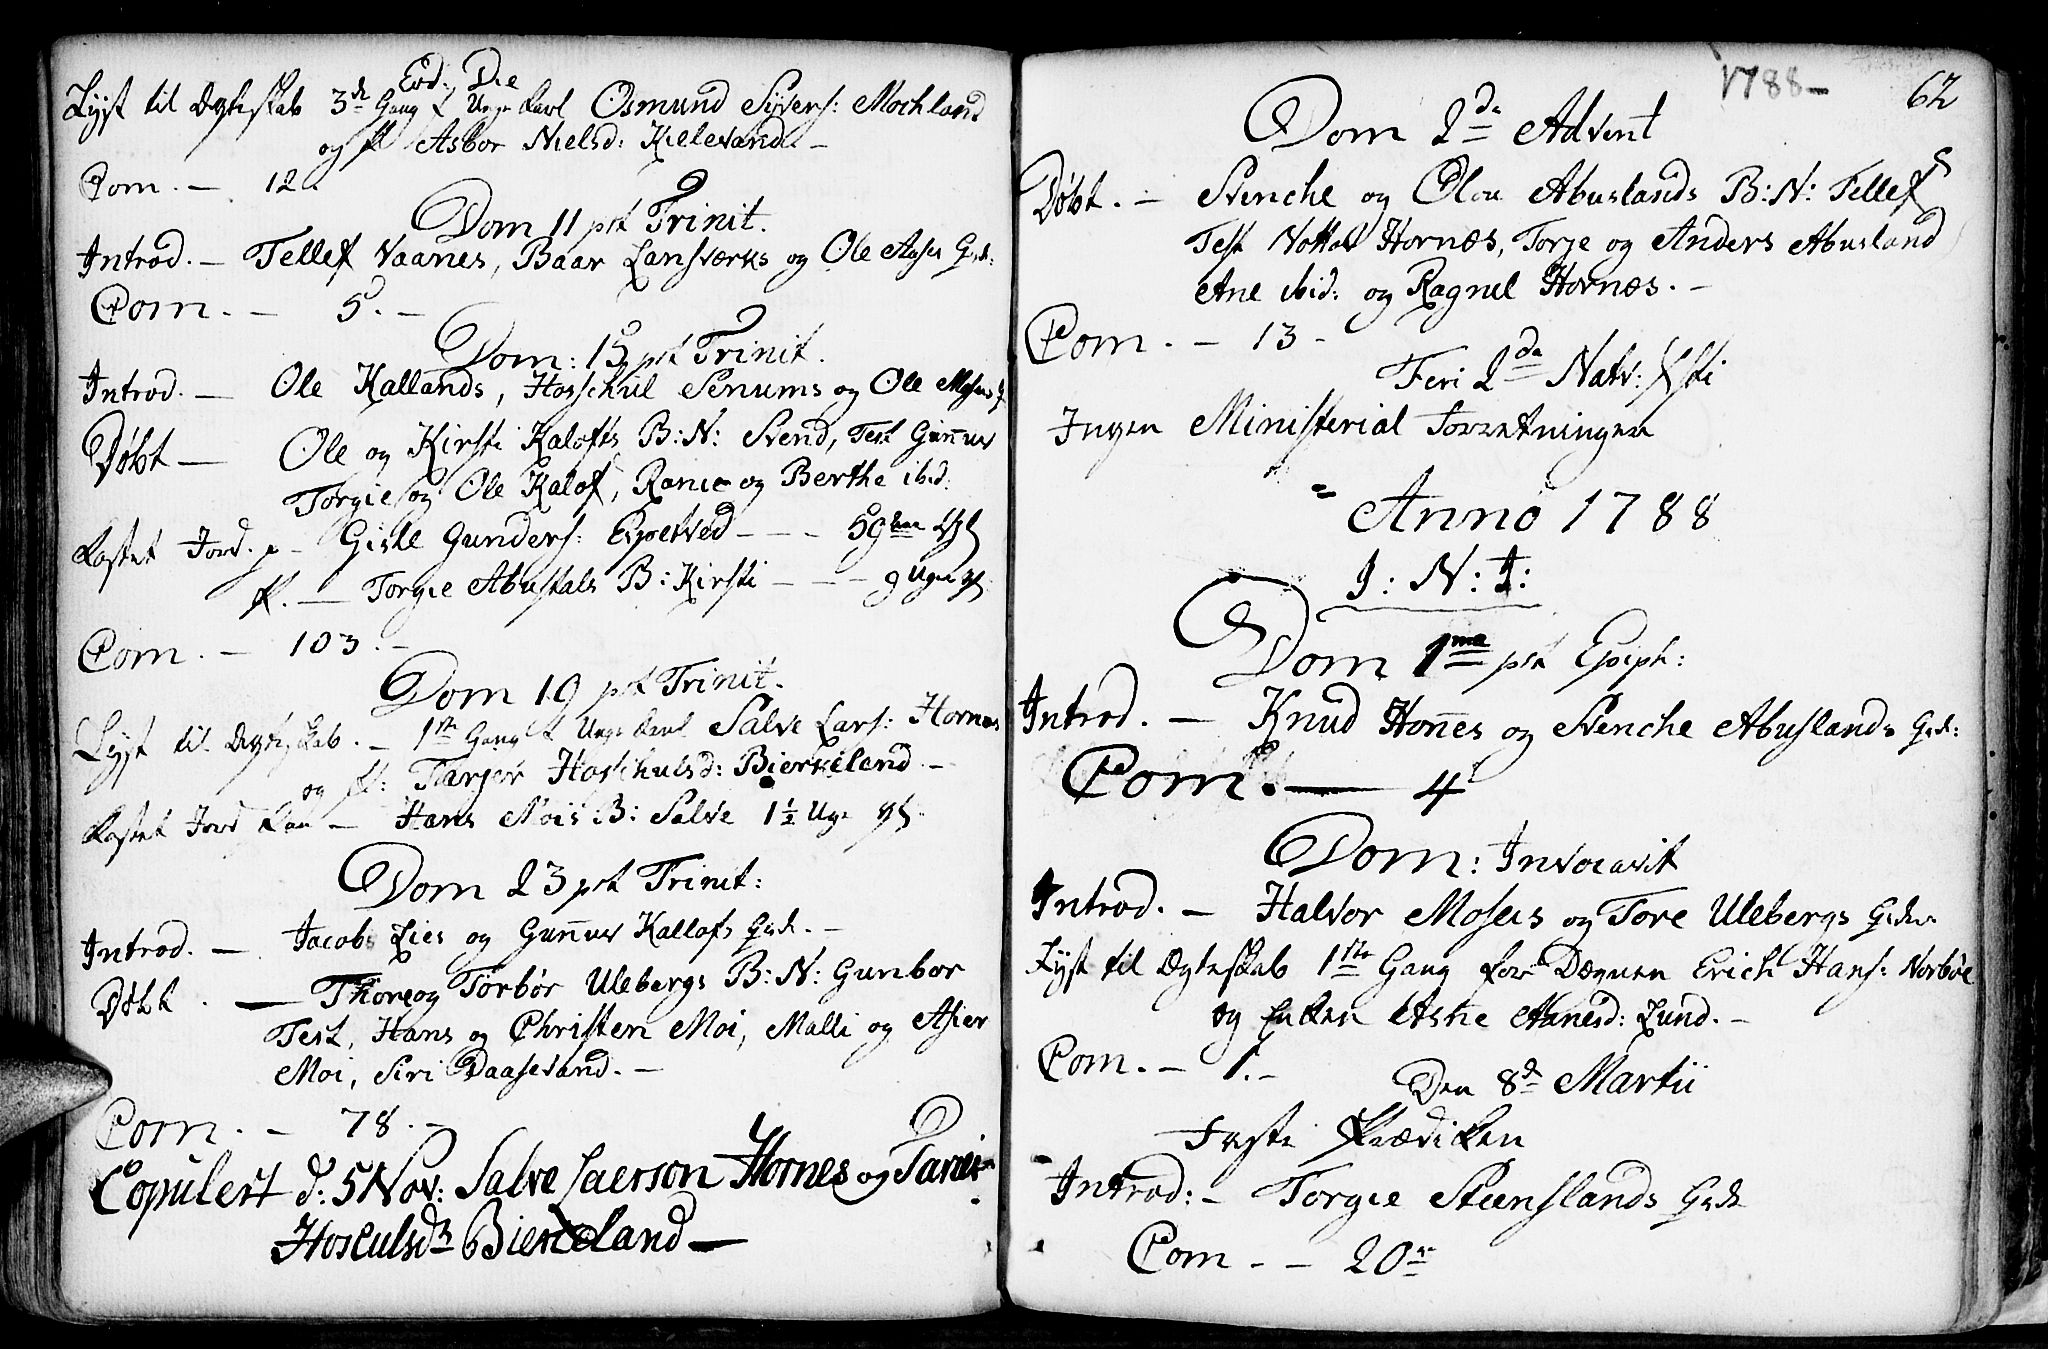 Eod: Die
Lyst til Ægteskab 3de Gang f Unge Karl Osmund Syvers: Mochland
og P Asbor Nielsd: Killevand. -
Com. - 12.
Dom 11 pst Trinit.
Introd. - Tellef Vaanes, Baar Lansværks og Ole Aases Qvd:
Com. - 5. -
Dom: 15 pst Trinit.
Introd. - Ole Kallands, Hoschul Senums og Ole Moses
Døbt - Ole og Kirsti Kalofts B: N: Svend, Test Gunner
Torgie og Ole Kalof, Ranie og Berthe ibid:
Kastet Jord. p - Gisle Gunders: Espetved - - - 59
P. - Torgie Abustals B: Kirsti - - - 9 Uger
Com. - 103. -
Dom 19 pst Trinit.
Lyst til Ægteskab. - 1ste Gang f Unge Karl Salve Lars: Hornes
og P: Tarjer Hoschulsd: Bierkeland. -
Kastet Jord Paa - Hans Mois B: Salve 1½ Uge
Dom 23 pst Trinit:
Introd. - Jacobs Lies og Gunner Kallofs Qvd. -
Døbt. - Thore og Torbør Ulebergs B: N: Gunbor
Test, Hans og Christen Moi, Malli og Asier
Moi, Siri Daasevand. -
Com. - 78. -
Copulert d: 5 Nov: Salve Laerson Hornes og Tarier
Hosculsdr Bierkeland -
1788 - 62
Dom 2da Advent
Døbt. - Svenche og Olou Abuslands B: N: Tellef
Test Nottol Hornæs, Torje og Anders Abusland
Ane ibid: og Ragnel Hornæs. -
Com. - 13 -
Feri 2da Nativ: Xsti
Ingen Ministerial Forretninger
Anno 1788
I: N: I:
Dom 1ma pst Epiph:
Introd. - Knud Honnes og Svenche Abuslands Qvd:
Com. - 4
Dom: Invocavit
Introd. - Halvor Moseis og Tore Ulebergs Qvder
Lyst til Ægteskab 1ste Gang for Degnen Erich Hans: Norbøe
og Enken Asne Aanesd: Lund. -
Com. - 1. -
Den 8de Martii
Faste Prædiken
Introd: - Torgie Steenslands Qvde
Com - - 20